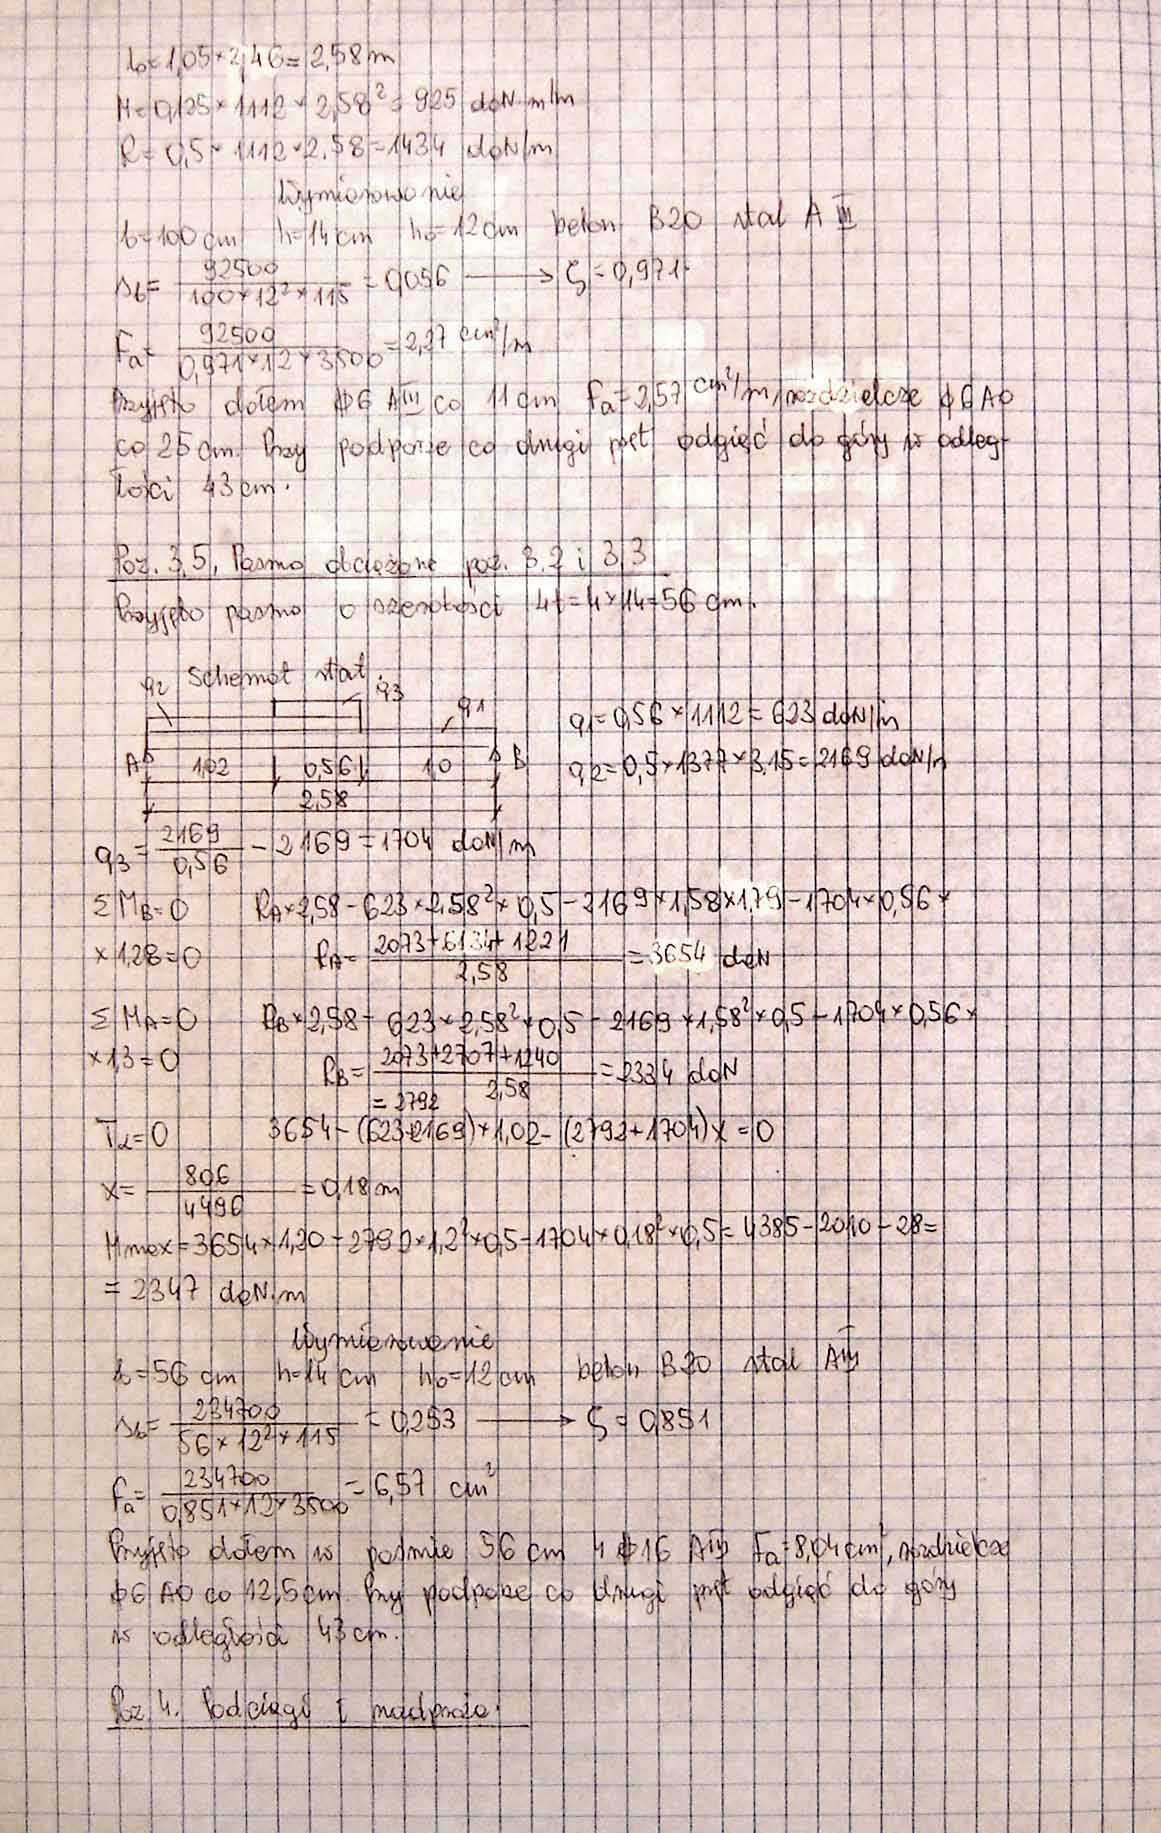 lo=1,05×2,46=2,58m
M=0,125×1112×2,58²=925 daN·m/m
R=0,5×1112×2,58=1434 daN/m
Wymiarowanie
b=100cm h=14cm ho=12cm beton B20 stal A III
sb= 92500 / 100×12²×115 = 0,056 → ζ=0,971
Fa= 92500 / 0,971×12×3500 = 2,27 cm²/m
Przyjęto dołem φ6 AIII co 11cm Fa=2,57 cm²/m, rozdzielcze φ6 A0
co 25cm. Przy podporze co drugi pręt odgiąć do góry w odleg-
łości 43cm.
Poz. 3,5. Pasmo obciążone poz. 3.2 i 3.3
Przyjęto pasmo o szerokości 4t=4×14=56 cm.
Schemat stat.
q2 q3 q1
q1=0,56×1112=623 daN/m
A 1,02 0,56 1,0 B
q2=0,5×1377×3,15=2169 daN/m
2,58
q3= 2169 / 0,56 - 2169=1704 daN/m
ΣMB=0 RA×2,58-623×2,58²×0,5-2169×1,58×1,79-1704×0,56×
×1,28=0 RA= 2073+6134+1221 / 2,58 = 3654 daN
ΣMA=0 RB×2,58-623×2,58²×0,5-2169×1,58²×0,5-1704×0,56×
×1,3=0 RB= 2073+2707+1240 / 2,58 = 2334 daN
=2792
Tα=0 3654-(623+2169)×1,02-(2792+1704)x=0
x= 806 / 4496 = 0,18m
Mmax=3654×1,20-2792×1,2²×0,5-1704×0,18²×0,5=4385-2010-28=
=2347 daN·m
Wymiarowanie
b=56 cm h=14 cm ho=12cm beton B20 stal AIII
sb= 234700 / 56×12²×115 = 0,253 → ζ=0,851
Fa= 234700 / 0,851×12×3500 = 6,57 cm²
Przyjęto dołem w paśmie 56 cm 4 φ16 AIII Fa=8,04cm², rozdzielcze
φ6 A0 co 12,5cm. Przy podporze co drugi pręt odgiąć do góry
w odległości 43cm.
Poz 4. Podciągi i nadproża.